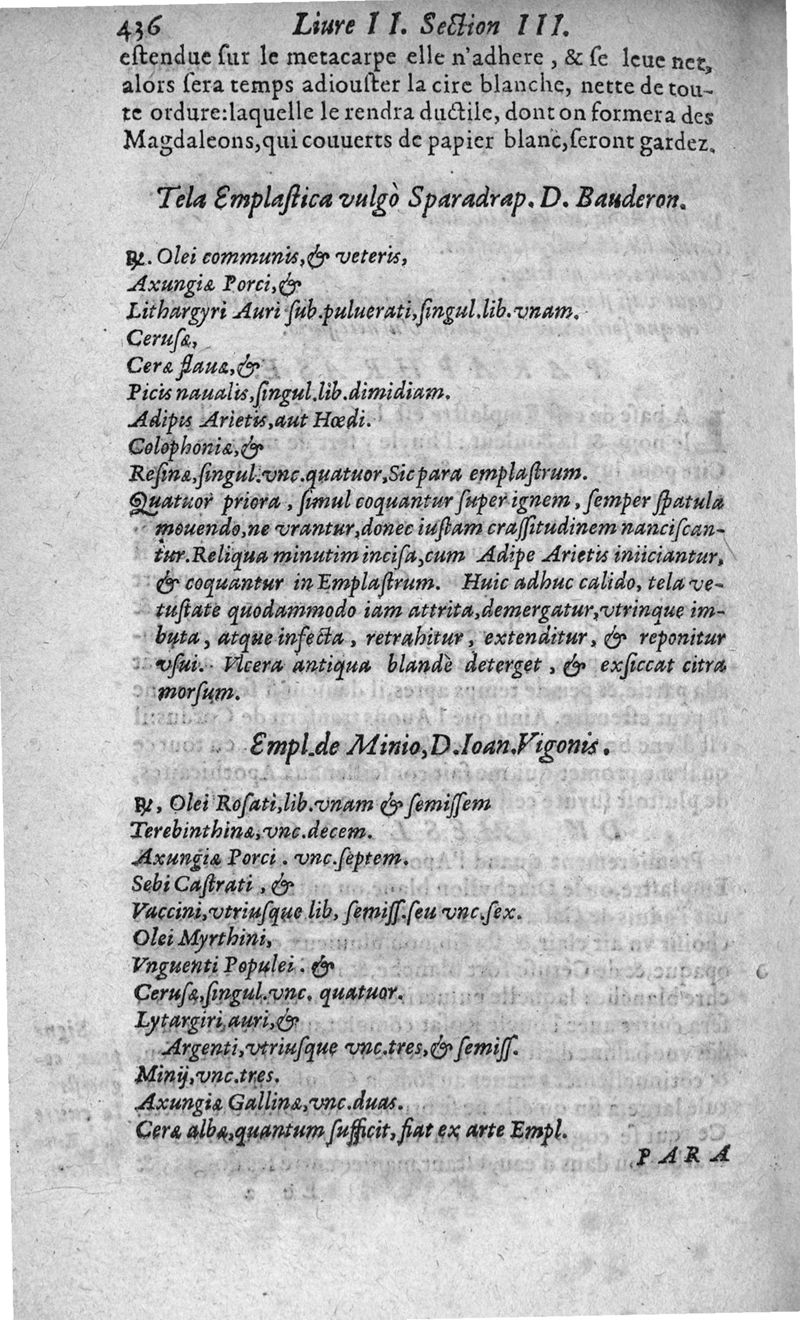 436 Liure II. Section III.
estendue sur le metacarpe elle n'adhere, & se leue net,
alors sera temps adiouster la cire blanche, nette de tou-
te ordure: laquelle le rendra ductile, dont on formera des
Magdaleons, qui couuerts de papier blanc, seront gardez.
Tela Emplastica vulgò Sparadrap. D. Bauderon.
℞. Olei communis, & veteris,
Axungiæ Porci, &
Lithargyri Auri sub. puluerati, singul. lib. vnam.
Cerusæ,
Ceræ flauæ, &
Picis naualis, singul. lib. dimidiam.
Adipis Arietis, aut Hœdi.
Colophoniæ, &
Resinæ, singul. vnc. quatuor, Sic para emplastrum.
Quatuor priora, simul coquantur super ignem, semper spatula
mouendo, ne vrantur, donec iustam crassitudinem nanciscan-
tur. Reliqua minutim incisa, cum Adipe Arietis iniiciantur,
& coquantur in Emplastrum. Huic adhuc calido, tela ve-
tustate quodammodo iam attrita, demergatur, vtrinque im-
buta, atque infecta, retrahitur, extenditur, & reponitur
vsui. Vlcera antiqua blandè deterget, & exsiccat citra
morsum.
Empl. de Minio, D. Ioan. Vigonis.
℞, Olei Rosati, lib. vnam & semissem
Terebinthinæ, vnc. decem.
Axungiæ Porci. vnc. septem.
Sebi Castrati, &
Vaccini, vtriusque lib, semiss. seu vnc. sex.
Olei Myrthini,
Vnguenti Populei. &
Cerusæ, singul. vnc. quatuor.
Lytargiri auri, &
Argenti, vtriusque vnc. tres, & semiss.
Minij, vnc. tres.
Axungiæ Gallinæ, vnc. duas.
Ceræ albæ, quantum sufficit, fiat ex arte Empl.
PARA